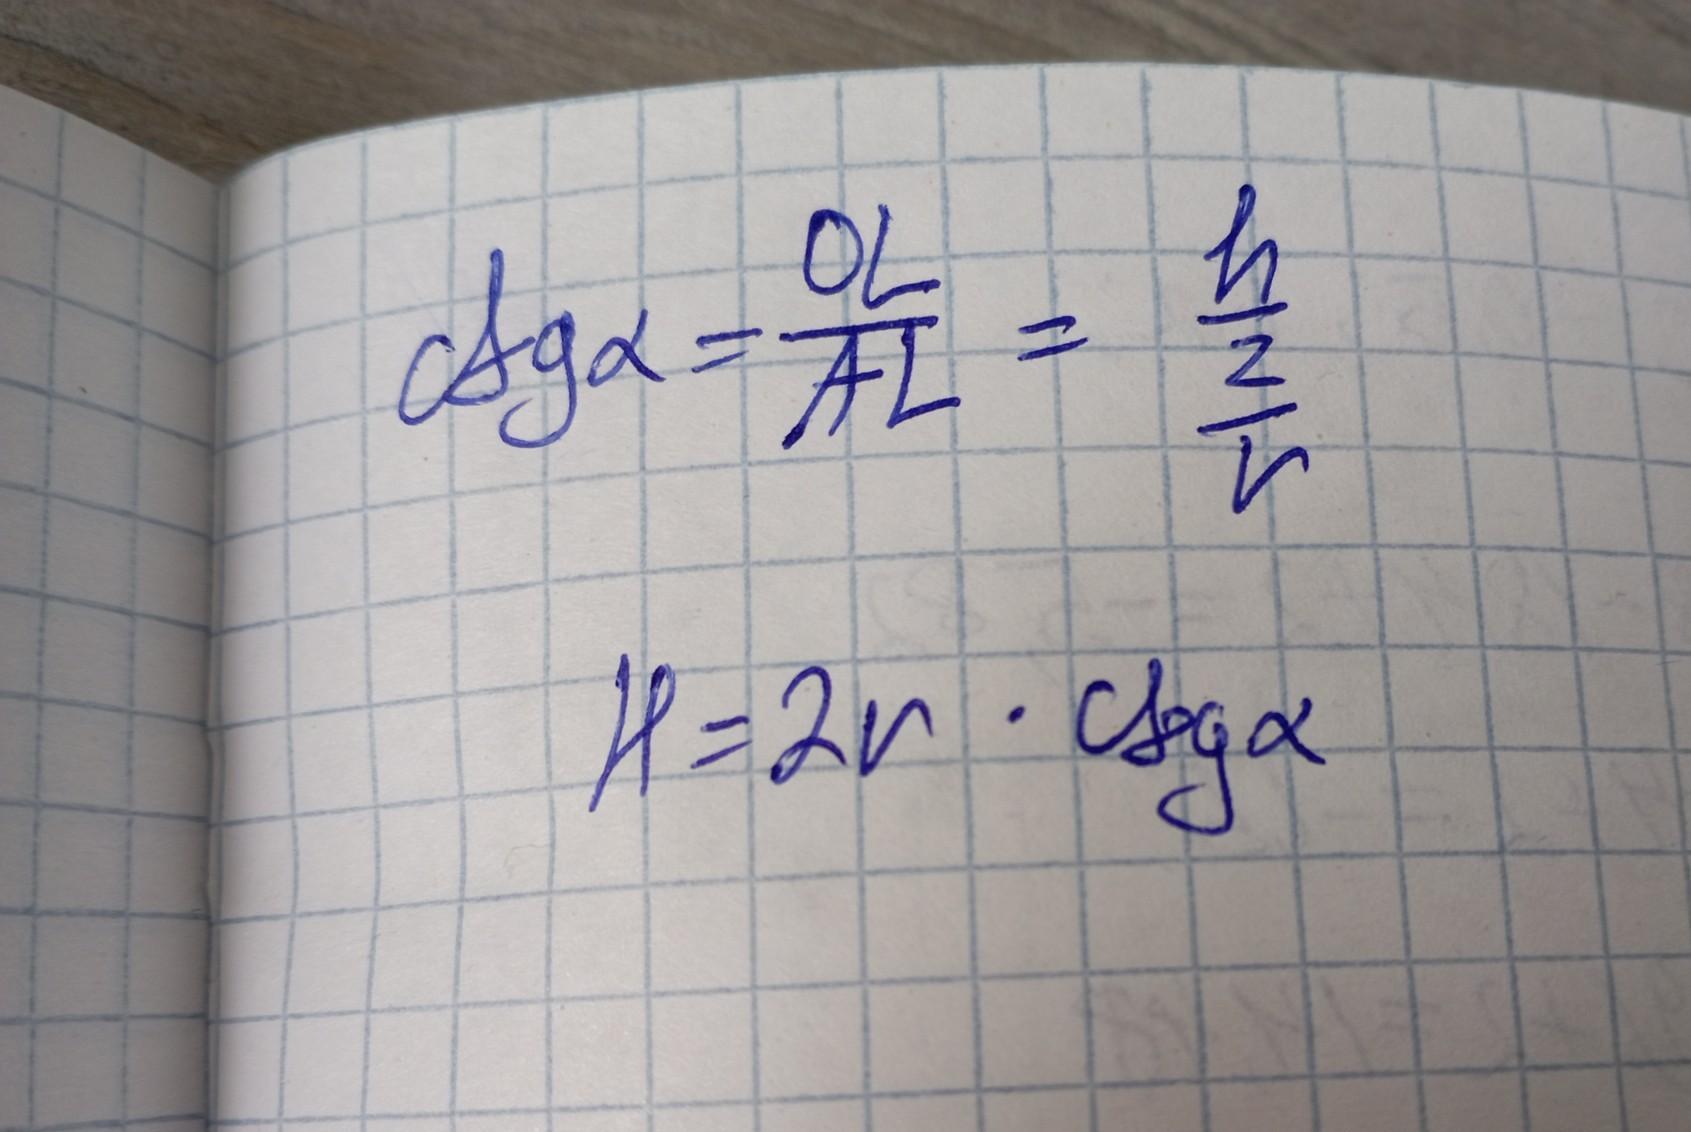 ctgα = OL/AL = h/2/r
H = 2r · ctgα